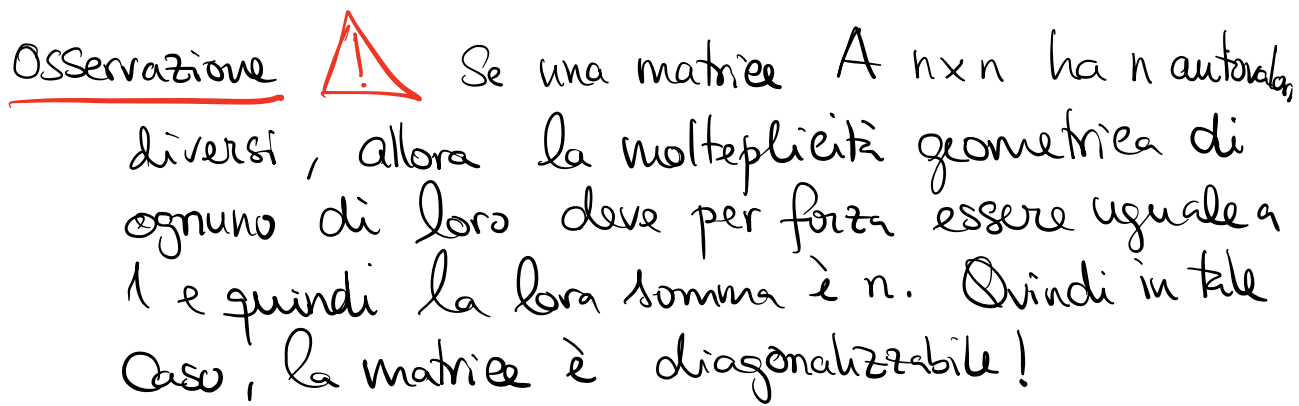 Osservazione ! Se una matrice A n×n ha n autovalori
diversi, allora la molteplicità geometrica di
ognuno di loro deve per forza essere uguale a
1 e quindi la loro somma è n. Quindi in tale
caso, la matrice è diagonalizzabile!